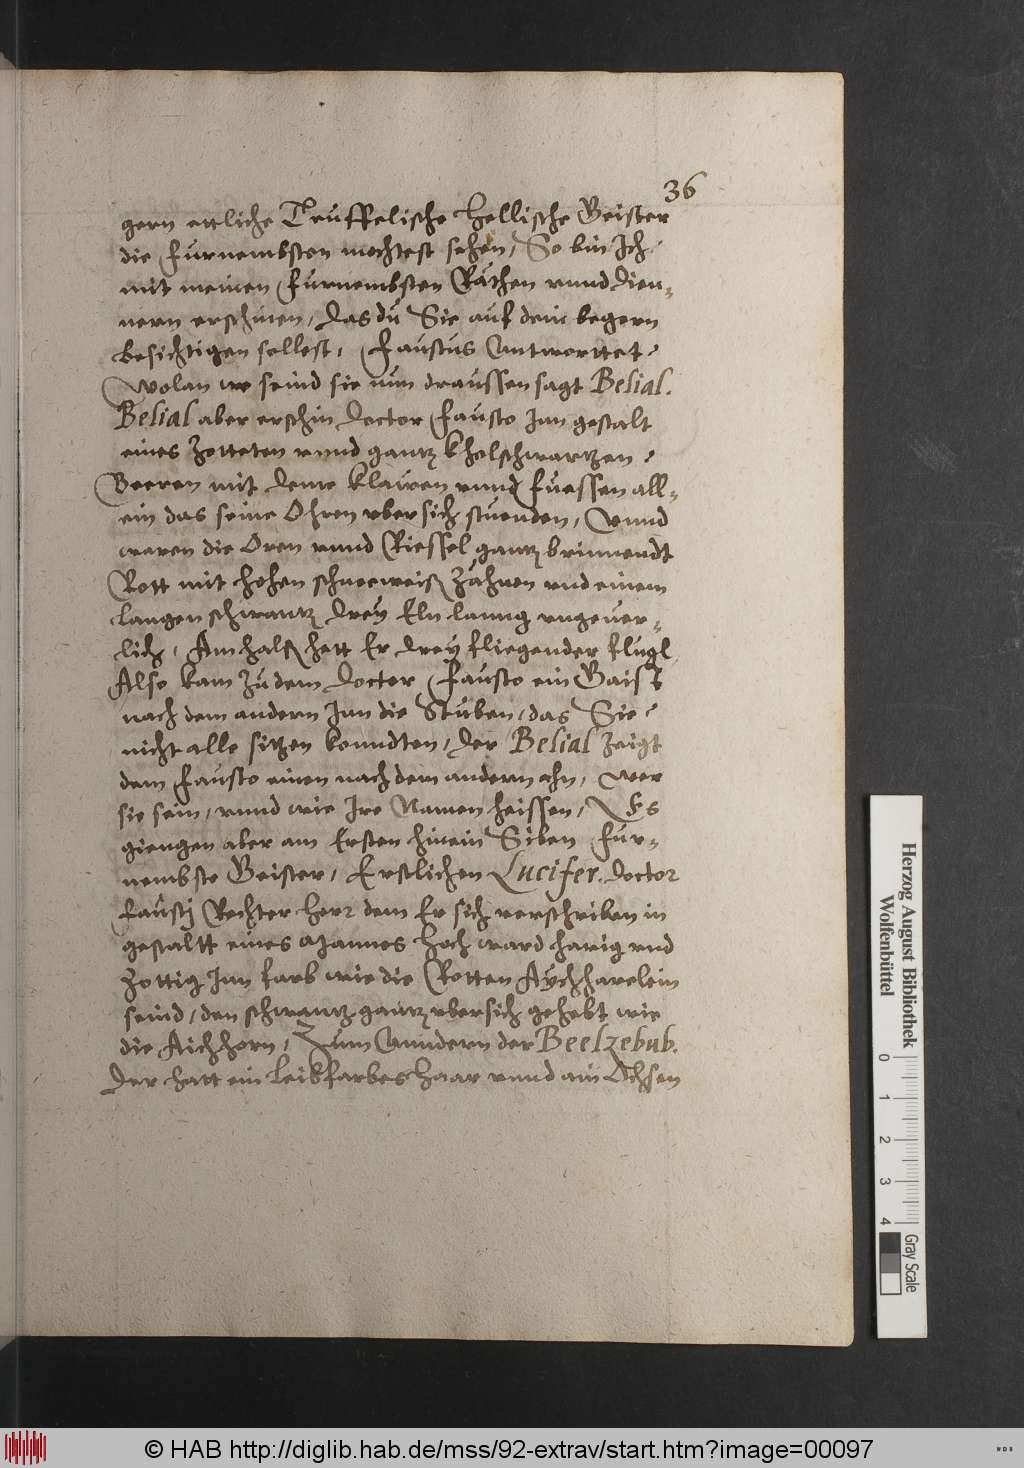 36
gern ettliche Teuffelische hellische Geister
die furnembsten mochtest sehen, So bin Ich
mit meinen furnembsten Räthen vnnd dien-
nern erschinen, das du Sie auf dein begern
besichtigen sollest, Faustus Antworttet
Wolan wo seind sie nun draussen sagt Belial.
Belial aber erschin doctor Fausto Inn gestalt
eines zotteten vnnd gantz kholschwartzen
Beeren mit denne klawen vnnd fuessen all-
ein das seine Ohren vbersich stuenden, Vnnd
waren die Oren vnnd Riessel gantz brinnendt
Rott mit hohen schneeweiß Zähnen vnd einem
langen schwantz drey Eln lanng vngeuer-
lich, Am halß hett Er drey fliegender flugl
Also kam zu dem doctor Fausto ein Gaist
nach dem andern Inn die Stuben, das Sie
nicht alle sitzen konndten, der Belial zeigt
dem Fausto einen nach dem andern ahn, wer
sie sein, vnnd wie Ire Namen heissen, Es
giengen aber am Ersten hinein Siben fur-
nembste Geister, Erstlichen Lucifer. doctor
Faustj Rechter herr dem Er sich verschriben in
gestaltt eines Mannes hoch ward harig vnd
zottig Inn farb wie die Rotten Aychharelein
seind, den schwantz gantz vbersich gehebt wie
die Aichhorn, Zum Anndern der Beelzebub.
der hatt ein leibfarbes Haar vnnd ain Ochsen
Herzog August Bibliothek
Wolfenbüttel
0 1 2 3 4
Gray Scale
© HAB http://diglib.hab.de/mss/92-extrav/start.htm?image=00097